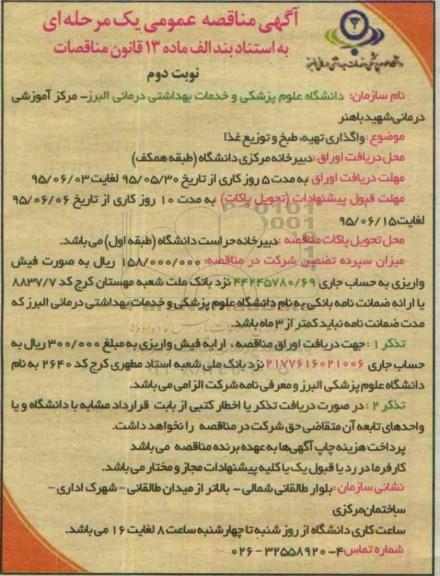 آگهی مناقصه عمومی یک مرحله ای
به استناد بند الف ماده ۱۳ قانون مناقصات
نوبت دوم
نام سازمان: دانشگاه علوم پزشکی و خدمات بهداشتی درمانی البرز- مرکز آموزشی
درمانی شهید باهنر
موضوع: واگذاری تهیه، طبخ و توزیع غذا
محل دریافت اوراق: دبیرخانه مرکزی دانشگاه (طبقه همکف)
مهلت دریافت اوراق به مدت ۵ روز کاری از تاریخ ۹۵/۰۵/۳۰ لغایت ۹۵/۰۶/۰۳
مهلت قبول پیشنهادات (تحویل پاکات) به مدت ۱۰ روز کاری از تاریخ ۹۵/۰۶/۰۶
لغایت ۹۵/۰۶/۱۵
محل تحویل پاکات مناقصه: دبیرخانه حراست دانشگاه (طبقه اول) می باشد.
میزان سپرده تضمین شرکت در مناقصه: ۱۵۸/۰۰۰/۰۰۰ ریال به صورت فیش
واریزی به حساب جاری ۴۴۲۴۵۷۸۰/۶۹ نزد بانک ملت شعبه مهستان کرج کد ۸۸۳۷/۷
یا ارائه ضمانت نامه بانکی به نام دانشگاه علوم پزشکی و خدمات بهداشتی درمانی البرز که
مدت ضمانت نامه نباید کمتر از ۳ ماه باشد.
تذکر ۱: جهت دریافت اوراق مناقصه، ارایه فیش واریزی به مبلغ ۳۰۰/۰۰۰ ریال به
حساب جاری ۲۱۷۷۶۱۶۰۲۱۰۰۶ نزد بانک ملی شعبه استاد مطهری کرج کد ۲۶۴۰ به نام
دانشگاه علوم پزشکی البرز و معرفی نامه شرکت الزامی می باشد.
تذکر ۲: در صورت دریافت تذکر یا اخطار کتبی از بابت قرارداد مشابه با دانشگاه و یا
واحدهای تابعه آن متقاضی حق شرکت در مناقصه را نخواهد داشت.
پرداخت هزینه چاپ آگهی ها به عهده برنده مناقصه می باشد
کارفرما در رد یا قبول یک یا کلیه پیشنهادات مجاز و مختار می باشد.
نشانی سازمان: بلوار طالقانی شمالی - بالاتر از میدان طالقانی - شهرک اداری -
ساختمان مرکزی
ساعت کاری دانشگاه از روز شنبه تا چهارشنبه ساعت ۸ لغایت ۱۶ می باشد.
شماره تماس: ۴-۳۲۵۵۸۹۲۰-۰۲۶